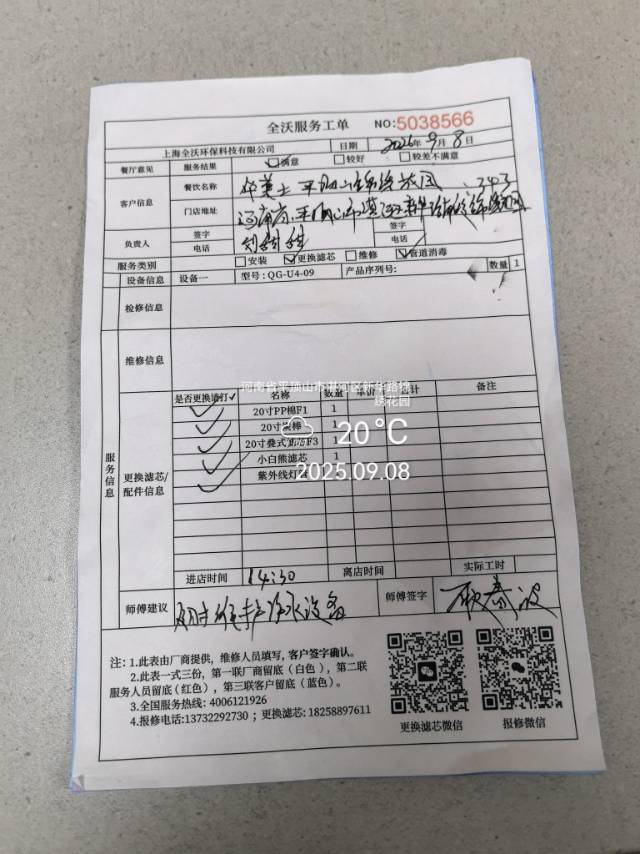 全沃服务工单 NO:5038566
上海全沃环保科技有限公司 日期 9月8日
餐厅意见 服务结果 满意 较好 较差不满意
客户信息 餐饮名称 华莱士 平顶山锦绣花园
门店地址 河南省平顶山市湛河区
负责人 签字 签字
电话 电话
服务类别 安装 更换滤芯 维修 管道消毒
设备信息 设备一 型号:QG-U4-09 产品序列号: 数量 1
检修信息
维修信息
河南省平顶山市湛河区新华路锦绣花园
服务信息 更换滤芯/配件信息
是否更换请打✓ 名称 数量 单价 合计 备注
✓ 20寸PP棉F1 1
✓ 20寸炭棒 1
✓ 20寸叠式滤芯F3 1
✓ 小白熊滤芯 1
✓ 紫外线灯
20°C
2025.09.08
进店时间 14:30 离店时间 实际工时
师傅建议 定时维护净水设备 师傅签字
注：1.此表由厂商提供，维修人员填写，客户签字确认。
2.此表一式三份，第一联厂商留底（白色），第二联
服务人员留底（红色），第三联客户留底（蓝色）。
3.全国服务热线: 4006121926
4.报修电话:13732292730；更换滤芯: 18258897611
更换滤芯微信 报修微信